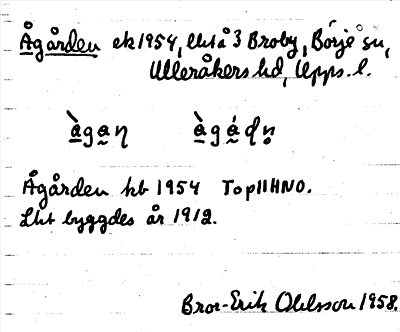 Ågården ek 1954, lht å 3 Broby, Börje sn,
Ulleråkers hd, Upps. l.
àgaη àgádṇ
Ågården kb 1954 Top 11HNO.
Lht byggdes år 1912.
Bror-Erik Ohlsson 1958.